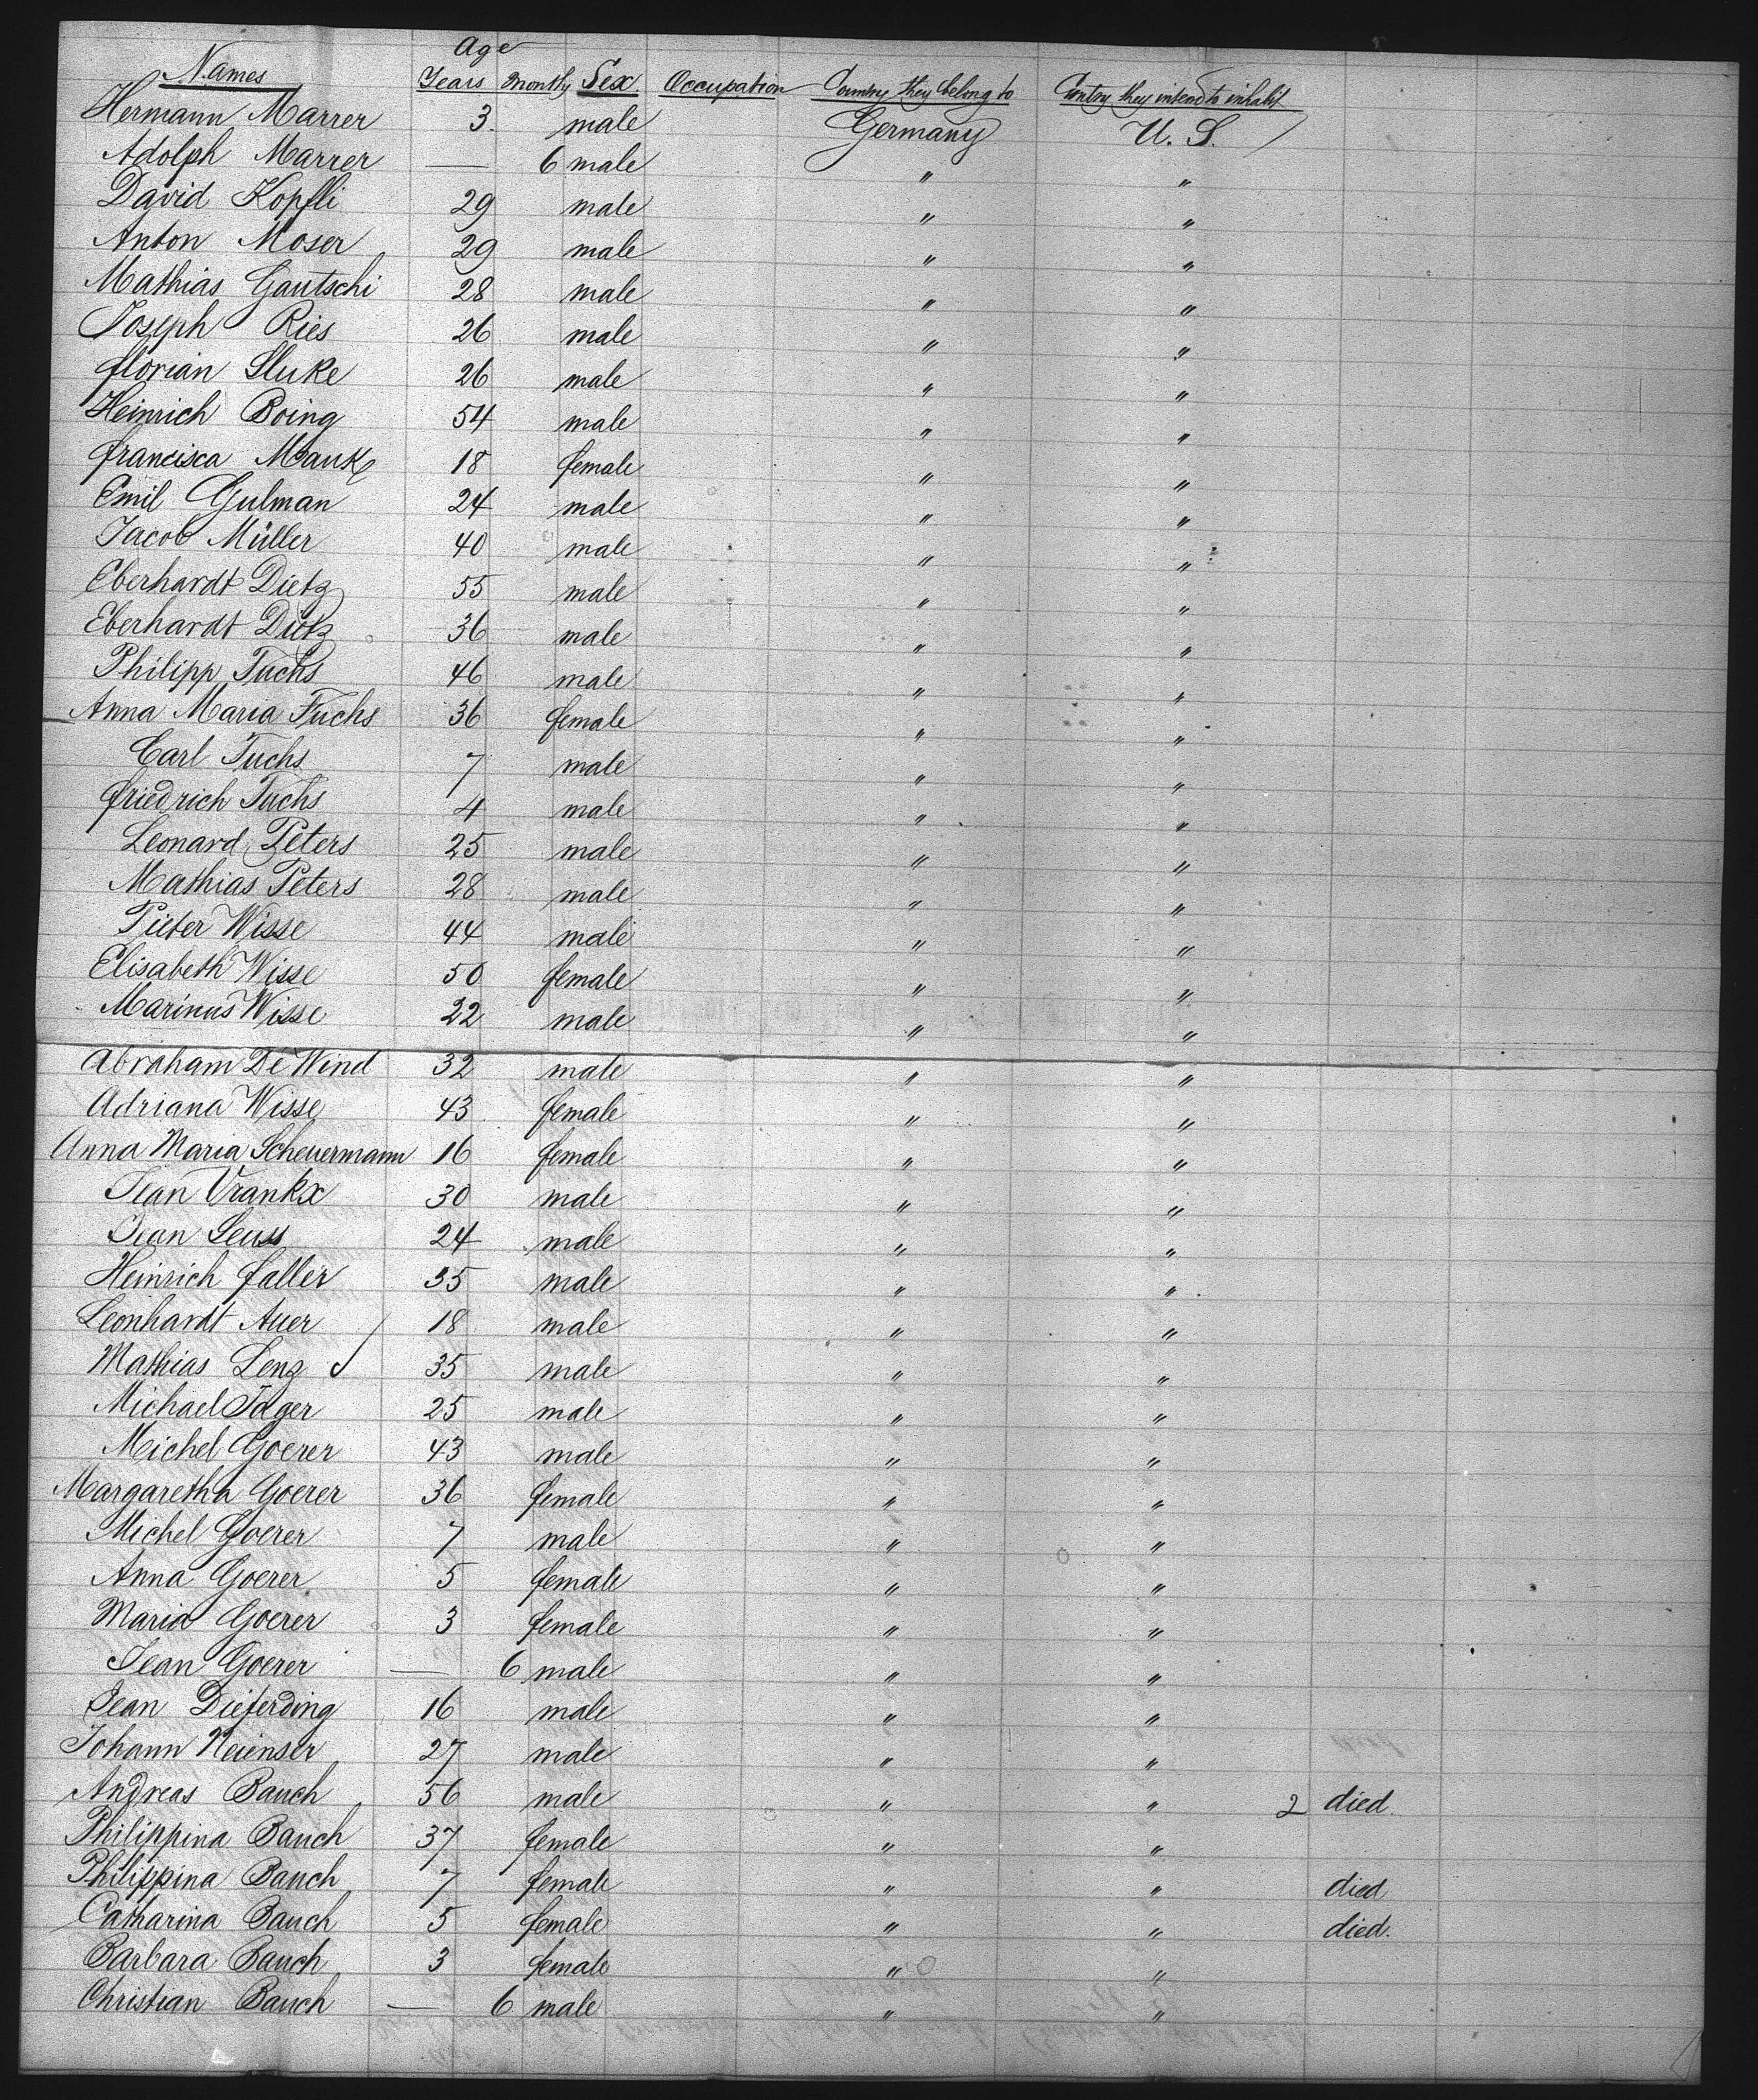 Age
Names Years Months Sex. Occupation Country they belong to Contry they intend to inhabit
Hermann Marrer 3. male Germany U. S.
Adolph Marrer — 6 male " "
David Kopfli 29 male " "
Anton Moser 29 male " "
Mathias Gautschi 28 male " "
Joseph Ries 26 male " "
florian Sluke 26 male " "
Heinrich Boing 54 male " "
francisca Mauk 18 female " "
Emil Gulman 24 male " "
Jacob Müller 40 male " "
Eberhardt Dietz 55 male " "
Eberhardt Dietz 36 male " "
Philipp Fuchs 46 male " "
Anna Maria Fuchs 36 female " "
Carl Fuchs 7 male " "
friedrich Fuchs 4 male " "
Leonard Peters 25 male " "
Mathias Peters 28 male " "
Pieter Wisse 44 male " "
Elisabeth Wisse 50 female " "
Marinus Wisse 22 male " "
Abraham De Wind 32 male " "
Adriana Wisse 43 female " "
Anna Maria Scheuermann 16 female " "
Jean Vrankx 30 male " "
Jean Seuss 24 male " "
Heinrich faller 35 male " "
Leonhardt Auer 18 male " "
Mathias Lenz 35 male " "
Michael Jäger 25 male " "
Michel Goerer 43 male " "
Margaretha Goerer 36 female " "
Michel Goerer 7 male " "
Anna Goerer 5 female " "
Maria Goerer 3 female " "
Jean Goerer — 6 male " "
Jean Dieterding 16 male " "
Johann Neienser 27 male " "
Andreas Bauch 56 male " " 2 died.
Philippina Bauch 37 female " "
Philippina Bauch 7 female " " died
Catharina Bauch 5 female " " died.
Barbara Bauch 3 female " "
Christian Bauch — 6 male " "